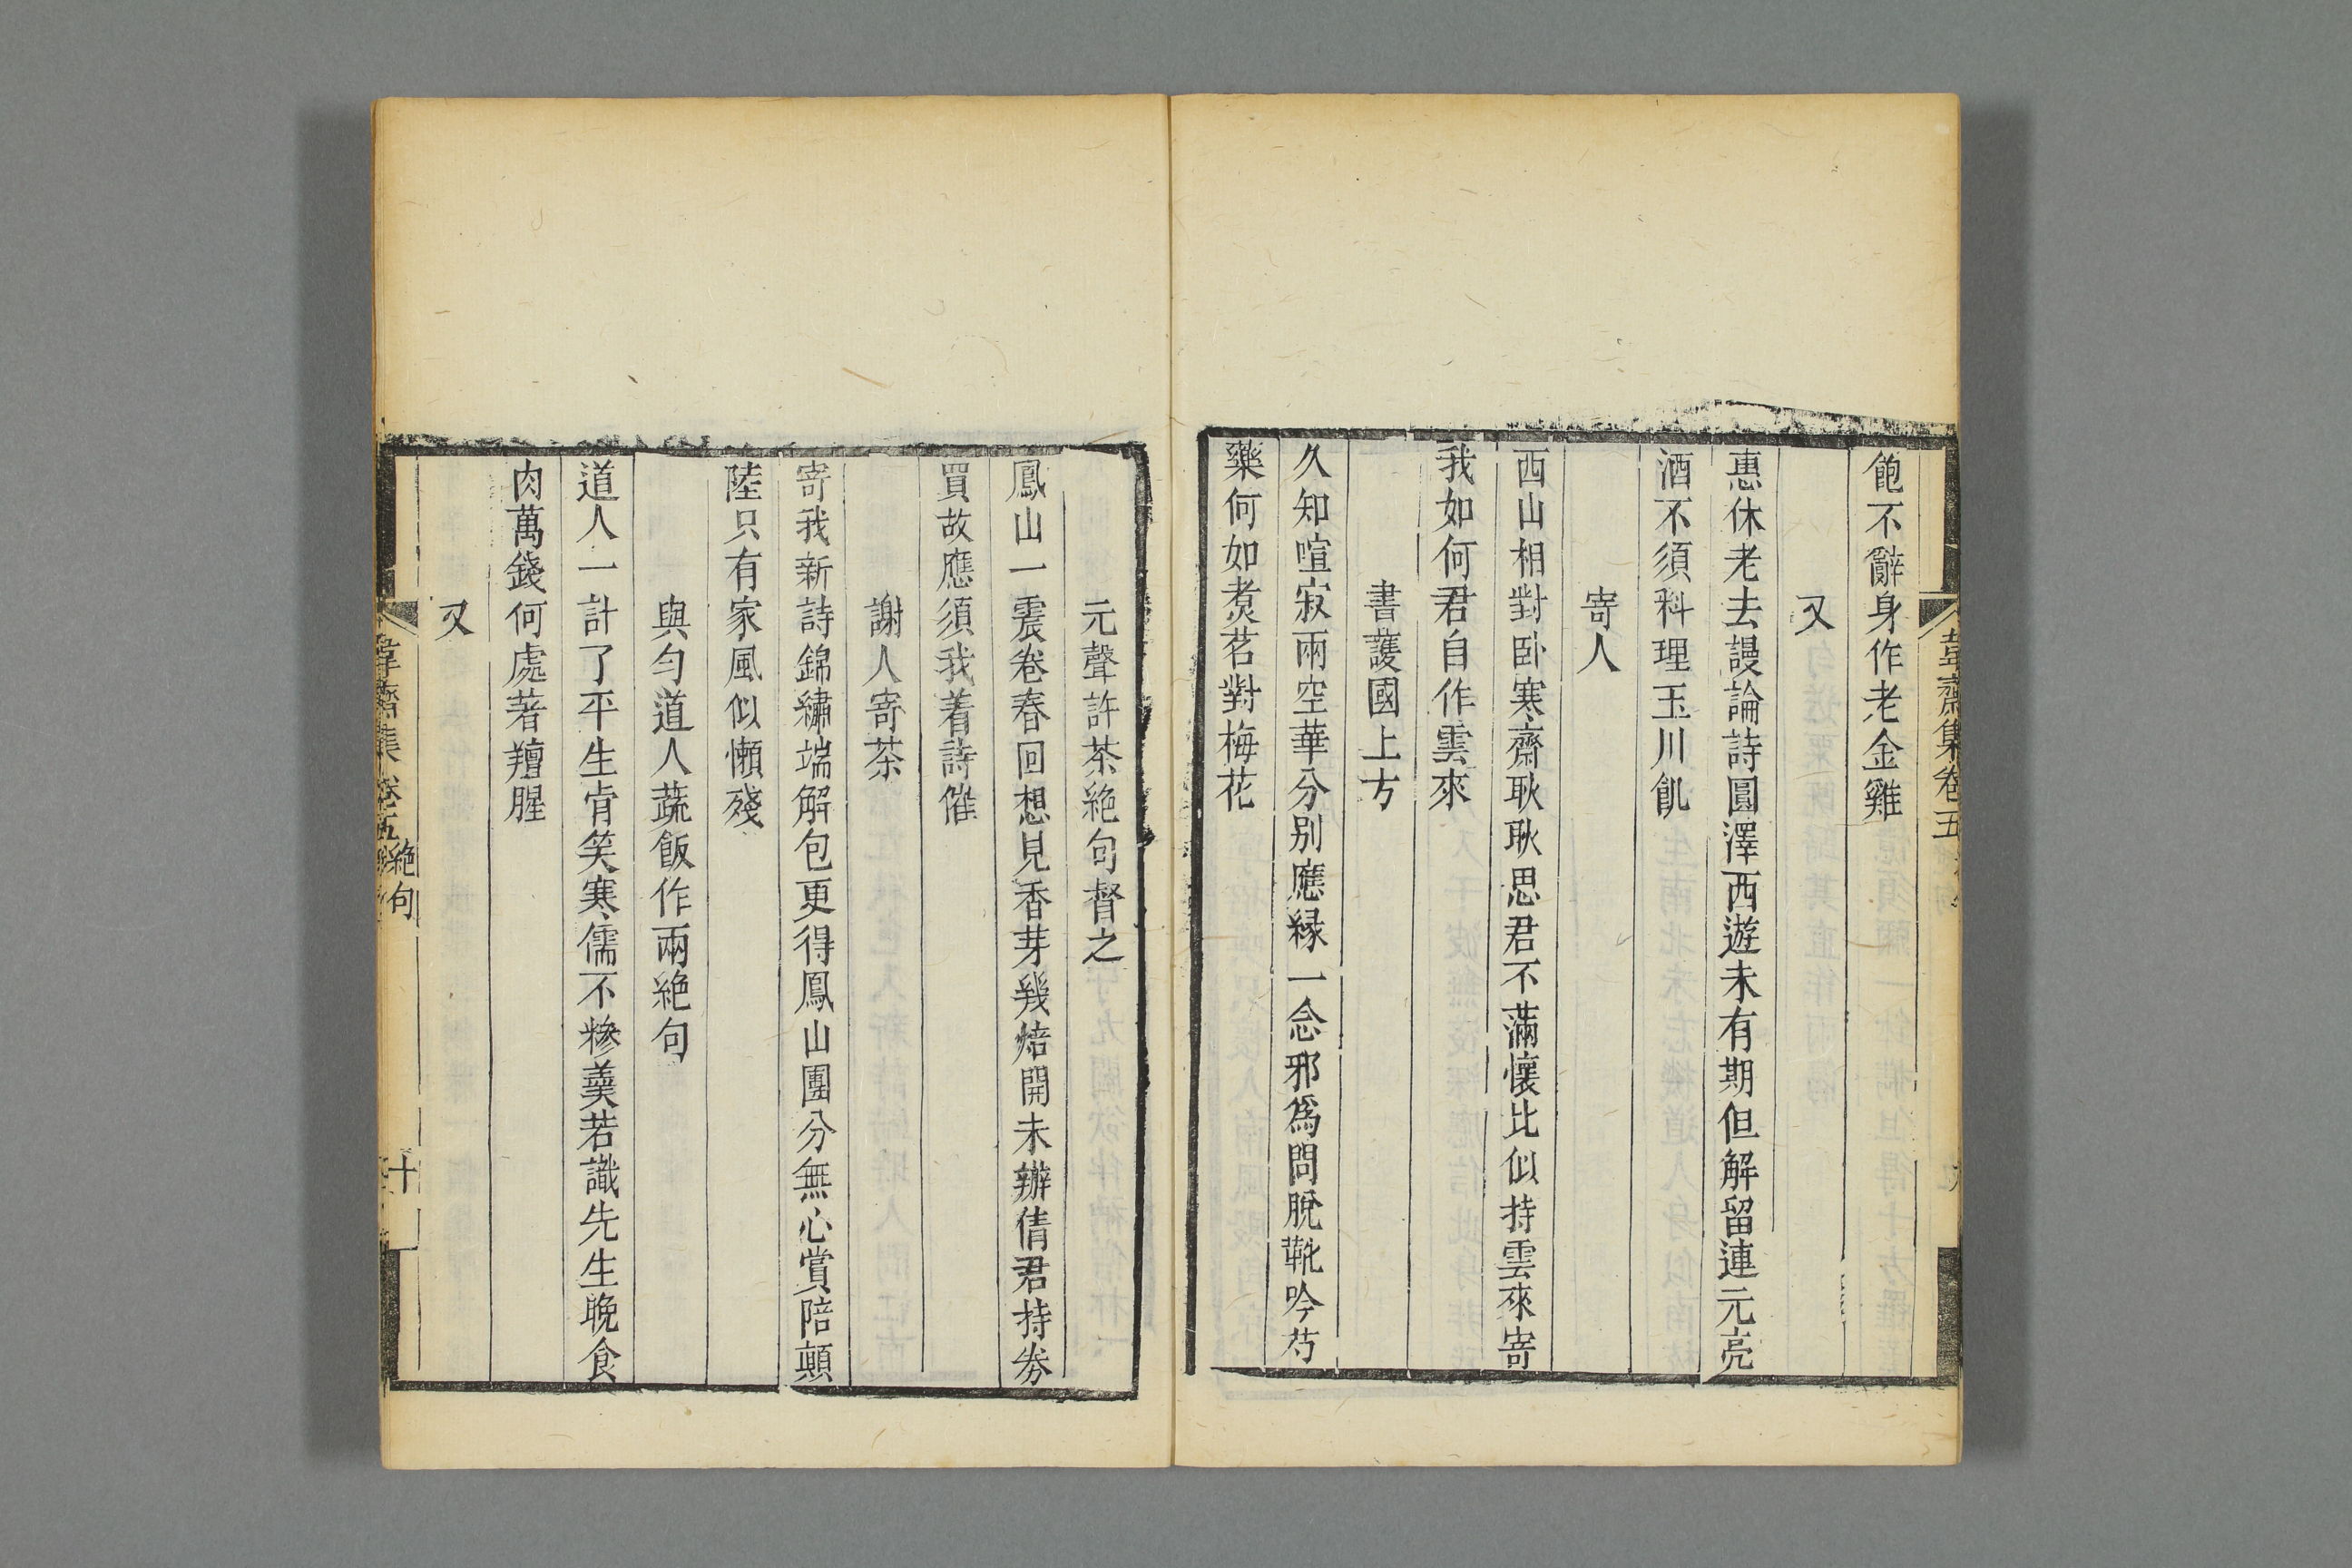 韋齋集卷五
飽不辭身作老金雞
又
惠休老去謾論詩圓澤西遊未有期但解留連元亮
酒不須料理玉川飢
寄人
西山相對卧寒齋耿耿思君不滿懷比似持雲來寄
我如何君自作雲來
書護國上方
久知喧寂兩空華分别應縁一念邪爲問脫靴吟芍
藥何如煑茗對梅花
元聲許茶絶句督之
鳳山一震卷春回想見香芽幾焙開未辦倩君持劵
買故應須我着詩催
謝人寄茶
寄我新詩錦繡端解包更得鳳山團分無心賞陪顛
陸只有家風似懶殘
與勻道人蔬飯作兩絶句
道人一計了平生肯笑寒儒不糝羹若識先生晚食
肉萬錢何處著羶腥
又
韋齋集 卷五 絶句 十